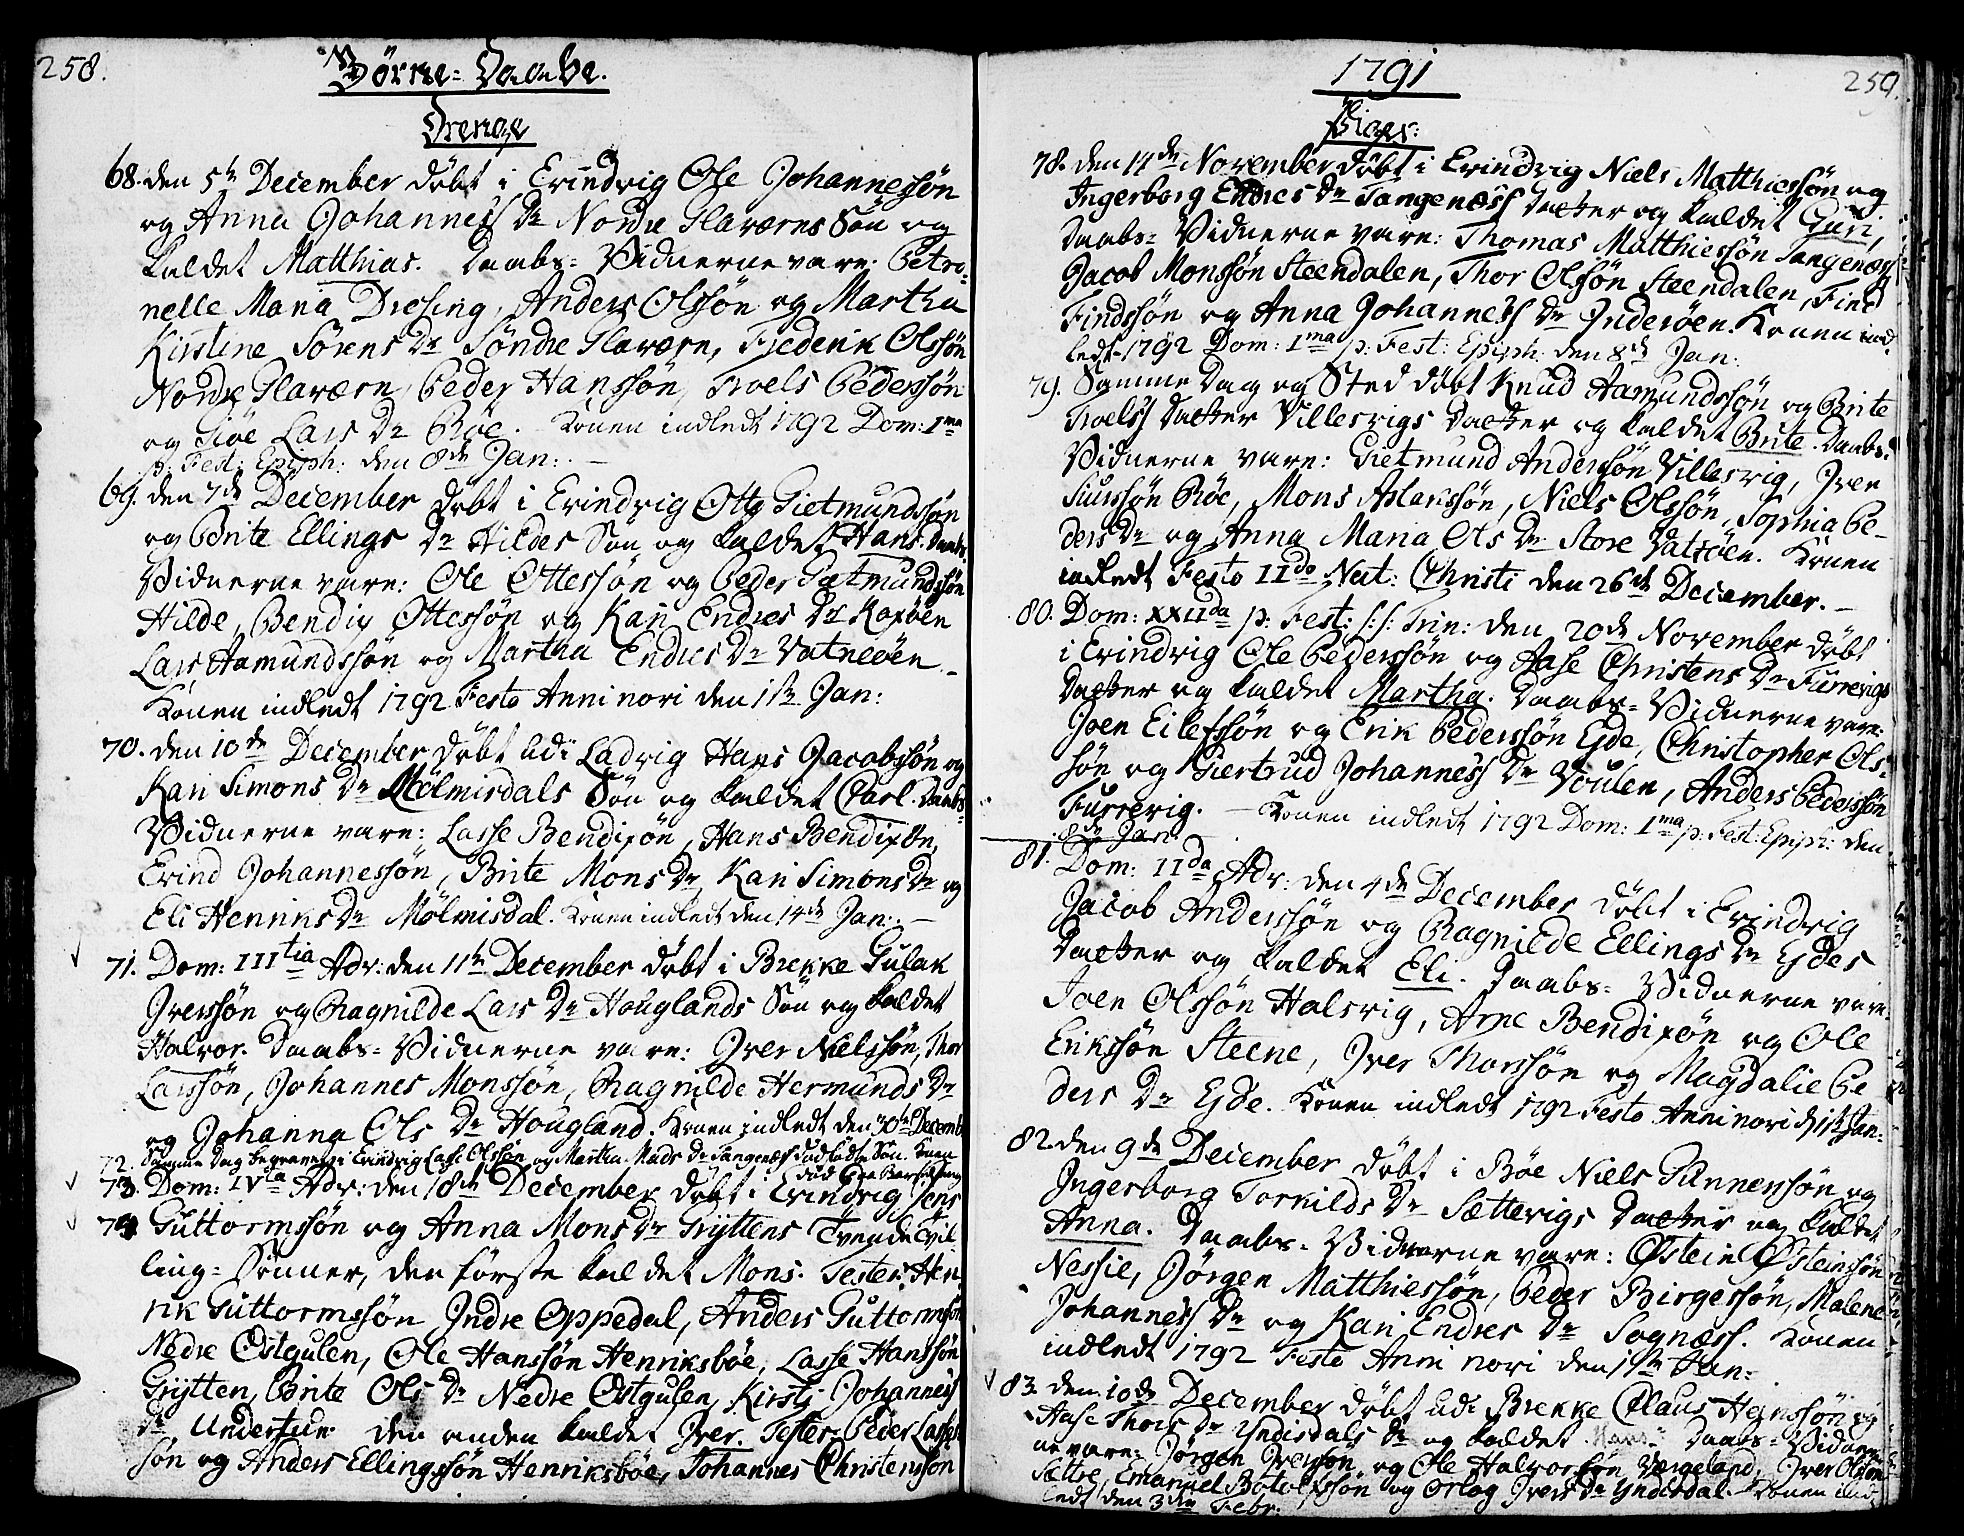 258.
Børne-Daabe.
Drenge
68. den 5te December døbt i Evindvig Ole Johannessøn
og Anna Johanness Dr Nordre Slaværns Søn og
kaldet Matthias. Daabs-Vidnerne vare: Petro-
nelle Maria Dresing, Anders Olssøn og Martha
Kirstine Sørens Dr Søndre Slaværn, Frederik Olssøn
Nordre Slaværn, Peder Hanssøn, Troels Pederssøn
og Siøe Lars Dr Bøe. Konen indledt 1792 Dom: 1ma
p: Fest: Epiph: den 8de Jan: –
69. den 7de December døbt i Evindvig Otte Gietmundssøn
og Brite Ellings Dr Hildes Søn og kaldet Hans. Daabs-
Vidnerne vare: Ole Ottessøn og Peder Gietmundssøn
Hilde, Bendix Ottessøn og Kari Endres Dr Kaxøen
Lars Aamundssøn og Martha Endres Dr Vatneøen. –
Konen indledt 1792 Festo Anni novi den 1ste Jan:
70. den 10de December døbt udi Ladvig Hans Jacobssøn og
Kari Simons Dr Mølmisdals Søn og kaldet Carl. Daabs-
Vidnerne vare: Lasse Bendixøn, Hans Bendixøn,
Evind Johannessøn, Brite Mons Dr, Kari Simons Dr og
Eli Henriks Dr Mølmisdal. Konen indledt den 14de Jan: –
71. Dom: IIItia Adv: den 11te December døbt i Brekke Gulak
Iverssøn og Ragnilde Lars Dr Houglands Søn og kaldet
Halvor. Daabs-Vidnerne vare: Iver Nielssøn, Thor
Larssøn, Johannes Monssøn, Ragnilde Hermunds Dr
og Johanna Ols Dr Hougland. Konen indledt den 30te Decemb
72. Samme Dag begravet i Evindvig Lasse Olssøn og Martha Mads Dr Tangenæss dødfødte Søn.
73. Dom: IVta Adv: den 18de December døbt i Evindvig Jens
74. Guttormssøn og Anna Mons Dr Gryttens Tvende Tvil
ling-Sønner, den første kaldet Mons. Testes: Hen
rik Guttormssøn Indre Oppedal, Anders Guttormssøn
Nedre Østgulen, Ole Hanssøn Henriksbøe, Lasse Hanssøn
Grytten, Brite Ols Dr Nedre Østgulen, Kirstj Johanness
Dr Undertun. den anden kaldet Iver. Testes: Peder Lasses
søn og Anders Ellingssøn Henriksbøe, Johannes Christenssøn
1791
259.
Piger:
78. den 14de November døbt i Evindvig Niels Matthiessøn og
Ingerborg Endres Dr Tangenæss Datter og kaldet Guri,
Daabs-Vidnerne vare: Thomas Matthiessøn Tangenæss
Jacob Monssøn Steendalen, Thor Olssøn Steendalen, Find
Findssøn og Anna Johanness Dr Inderøen. Konen ind-
ledt 1792 Dom: 1ma p: Fest: Epiph: den 8de Jan:
79. Samme Dag og Sted døbt Knud Aamundssøn og Brite
Troelss Datter Villesvigs Datter og kaldet Brite. Daabs-
Vidnerne vare: Gietmund Anderssøn Villesvig, Iver
Siurssøn Bøe, Mons Aslakssøn, Niels Olssøn, Sophia Pe-
ders Dr og Anna Maria Ols Dr Store Vatsøen. Konen
indledt Festo IIdo Nat: Christi den 26de December. –
80. Dom: XXIIda p: Fest: s:s: Trin: den 20de November døbt
i Evindvig Ole Pederssøn og Aase Christens Dr Furrevigs
Datter og kaldet Martha. Daabs-Vidnerne vare:
Joen Eilefssøn og Erik Pederssøn Eide, Christopher Ols-
søn og Giertrud Johanness Dr Voulen, Anders Pederssøn
Furrevig. – Konen indledt 1792 Dom: 1ma p: Fest: Epiph: den
8de Jan: –
81. Dom: IIda Adv: den 4de December døbt i Evindvig
Jacob Anderssøn og Ragnilde Ellings Dr Eides
Datter og kaldet Eli. Daabs-Vidnerne vare:
Joen Olssøn Halsvig, Arne Bendixøn og Ole
Erikssøn Steene, Iver Thorssøn og Magdalie Pe
ders Dr Eide. Konen indledt 1792 Festo Anni novi d: 1ste Jan:
82. den 9de December døbt i Bøe Niels Gunnerssøn og
Ingerborg Torkilds Dr Sættevigs Datter og kaldet
Anna. Daabs-Vidnerne vare: Østein Østeinssøn
Nessie, Jørgen Matthiessøn, Peder Birgessøn, Malene
Johanness Dr og Kari Endres Dr Sognæss. Konen
indledt 1792 Festo Anni novi den 1ste Jan:
83. den 10de December døbt udi Brekke Claus Heinssøn og
Aase Thors Dr Yndisdals Dr og kaldet Daabs-Vidner-
ne vare: Jørgen Iverssøn og Ole Halvorssøn Værgeland, Iver Olssøn
Sættre, Emanuel Botolfssøn og Orlog Ivers Dr Yndesdal. Konen ind-
ledt den 3die Febr: